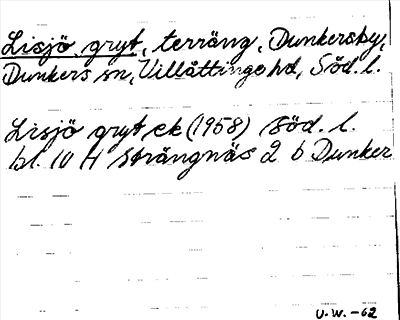 Lisjö gryt, terräng, Dunkersby,
Dunkers sn, Villåttinge hd, Söd. l.
Lisjö gryt ek (1958) Söd. l.
bl. 10 H Strängnäs 2 b Dunker
U.W. -62